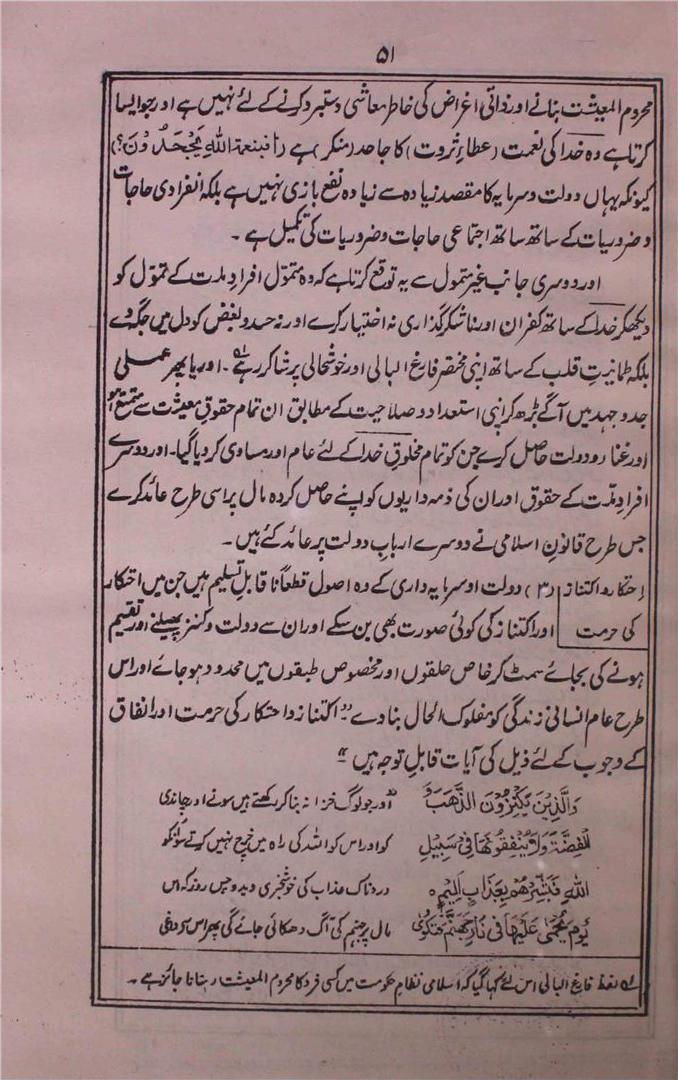 ۵۱
محروم المعیشت بنانے اور ذاتی اغراض کی خاطر معاشی دستبرد کرنے کے لئے نہیں ہے اور جو ایسا
کرتا ہے وہ خدا کی نعمت (عطاءِ ثروت) کا جاحد (منکر) ہے (أَفَبِنِعْمَةِ اللّٰهِ يَجْحَدُوْنَ؟)
کیونکہ یہاں دولت و سرمایہ کا مقصد زیادہ سے زیادہ نفع بازی نہیں ہے بلکہ انفرادی حاجات
و ضروریات کے ساتھ ساتھ اجتماعی حاجات و ضروریات کی تکمیل ہے۔
اور دوسری جانب غیر متمول سے یہ توقع کرتا ہے کہ وہ متموّل افرادِ ملت کے تموّل کو
دیکھکر خدا کے ساتھ کفران اور ناشکر گذاری نہ اختیار کرے اور نہ حسد و بغض کو دل میں جگہ دے
بلکہ طمانیتِ قلب کے ساتھ اپنی مختصر فارغ البالی اور خوشحالی پر شاکر رہے ؎۱۔ اور یا پھر عملی
جدوجہد میں آگے بڑھ کر اپنی استعداد و صلاحیت کے مطابق ان تمام حقوقِ معیشت سے متمتع ہو
اور غنار و دولت حاصل کرے جن کو تمام مخلوقِ خدا کے لئے عام اور مساوی کر دیا گیا۔ اور دوسرے
افرادِ ملت کے حقوق اور ان کی ذمہ داریوں کو اپنے حاصل کردہ مال پر اسی طرح عائد کرے
جس طرح قانونِ اسلامی نے دوسرے اربابِ دولت پر عائد کئے ہیں۔
احتکار و اکتناز (۳) دولت و سرمایہ داری کے وہ اصول قطعاً ناقابلِ تسلیم ہیں جن میں احتکار
کی حرمت اور اکتناز کی کوئی صورت بھی بن سکے اور ان سے دولت و کنز پھیلنے اور تقسیم
ہونے کی بجائے سمٹ کر خاص حلقوں اور مخصوص طبقوں میں محدود ہو جائے اور اس
طرح عام انسانی زندگی کو مفلوک الحال بنا دے "اکتناز و احتکار کی حرمت اور انفاق
کے وجوب کے لئے ذیل کی آیات قابلِ توجہ ہیں"
وَالَّذِيْنَ يَكْنِزُوْنَ الذَّهَبَ وَ اور جو لوگ خزانہ بنا کر رکھتے ہیں سونے اور چاندی
الْفِضَّةَ وَلَا يُنْفِقُوْنَهَا فِيْ سَبِيْلِ کو اور اس کو اللہ کی راہ میں خرچ نہیں کرتے سو انکو
اللّٰهِ فَبَشِّرْهُمْ بِعَذَابٍ اَلِيْمٍ ہ دردناک عذاب کی خوشخبری دیدو جس روز کہ اس
يَوْمَ يُحْمٰى عَلَيْهَا فِيْ نَارِ جَهَنَّمَ فَتُكْوٰى مال پر جہنم کی آگ دھکائی جائے گی پھر اس سے داغی
؎۱ لفظ فارغ البالی اس لئے کہا گیا کہ اسلامی نظامِ حکومت میں کسی فرد کا محروم المعیشت رہنا ناجائز ہے۔